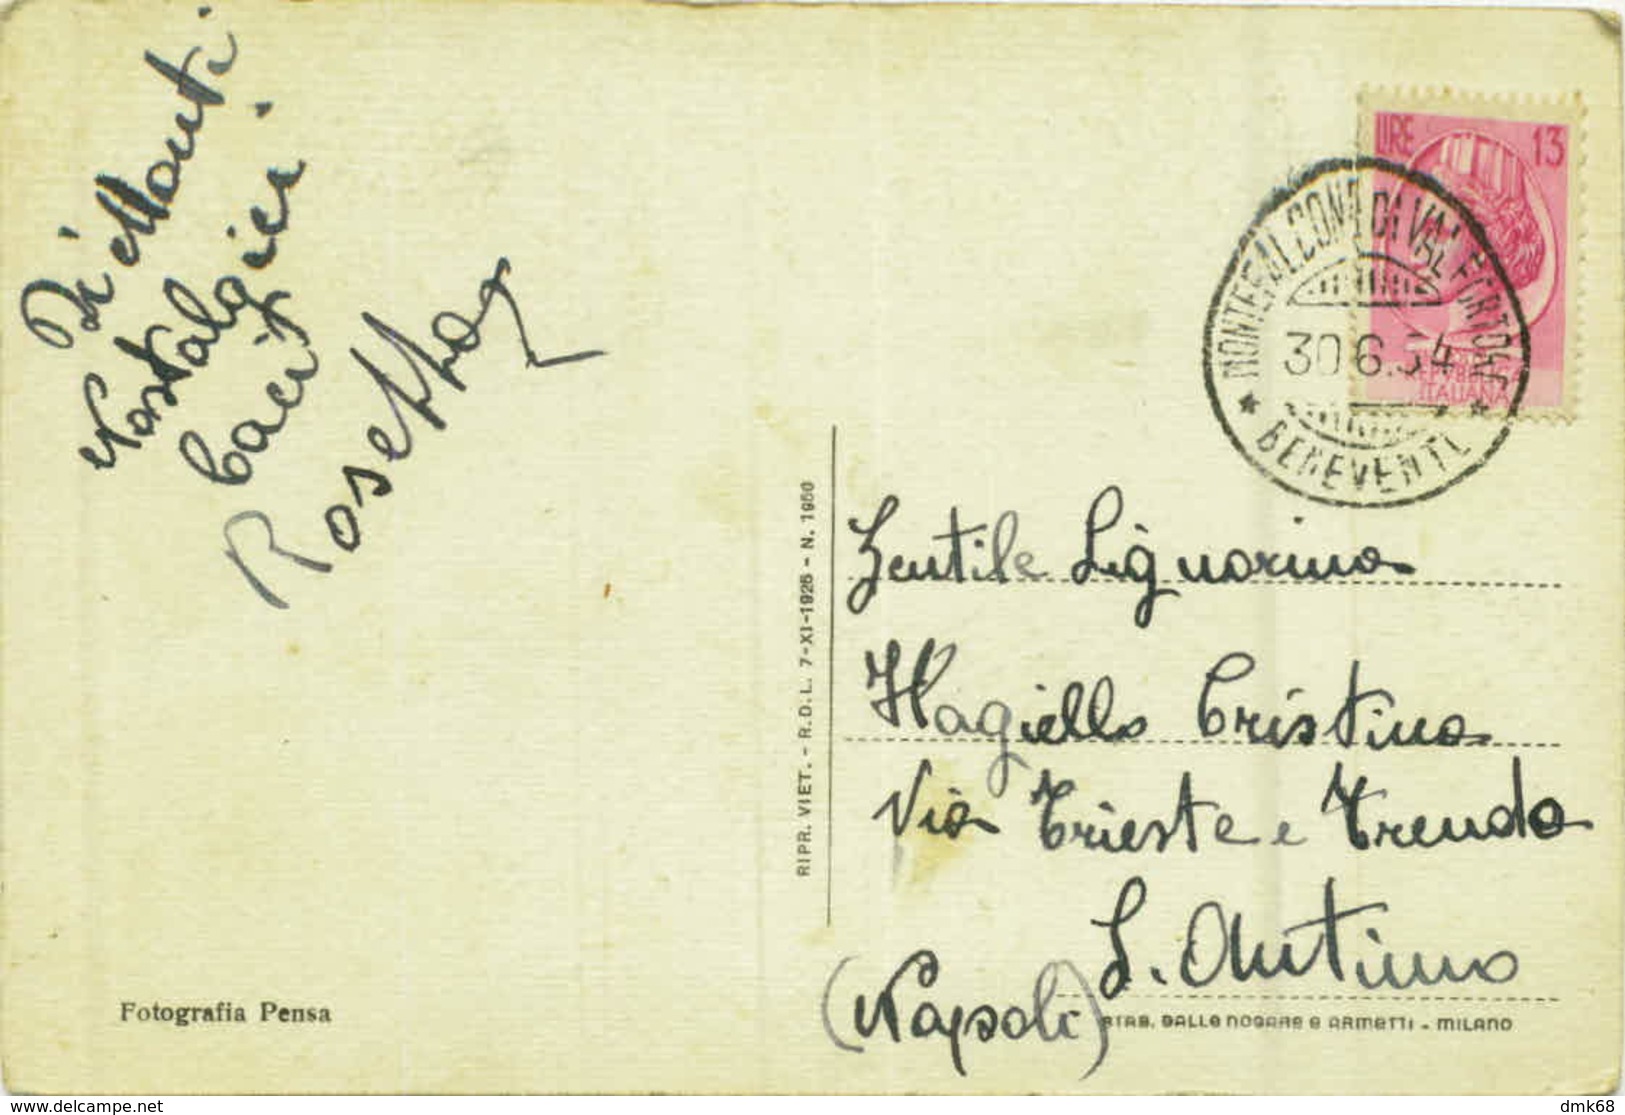 Più Monti
Nostalgici
Baci
Rosetta
LIRE 13
REPVBBLICA
ITALIANA
MONTEFALCONE DI VALFORTORE
30.6.54
* BENEVENTO *
RIPR. VIET. - R.D.L. 7-XI-1925 - N. 1950
Gentile Signorina
Magiello Cristina
Via Trieste e Trendo
S. Antimo
(Napoli)
Fotografia Pensa
STAB. DALLE NOGARE E ARMETTI - MILANO
www.delcampe.net
dmk68